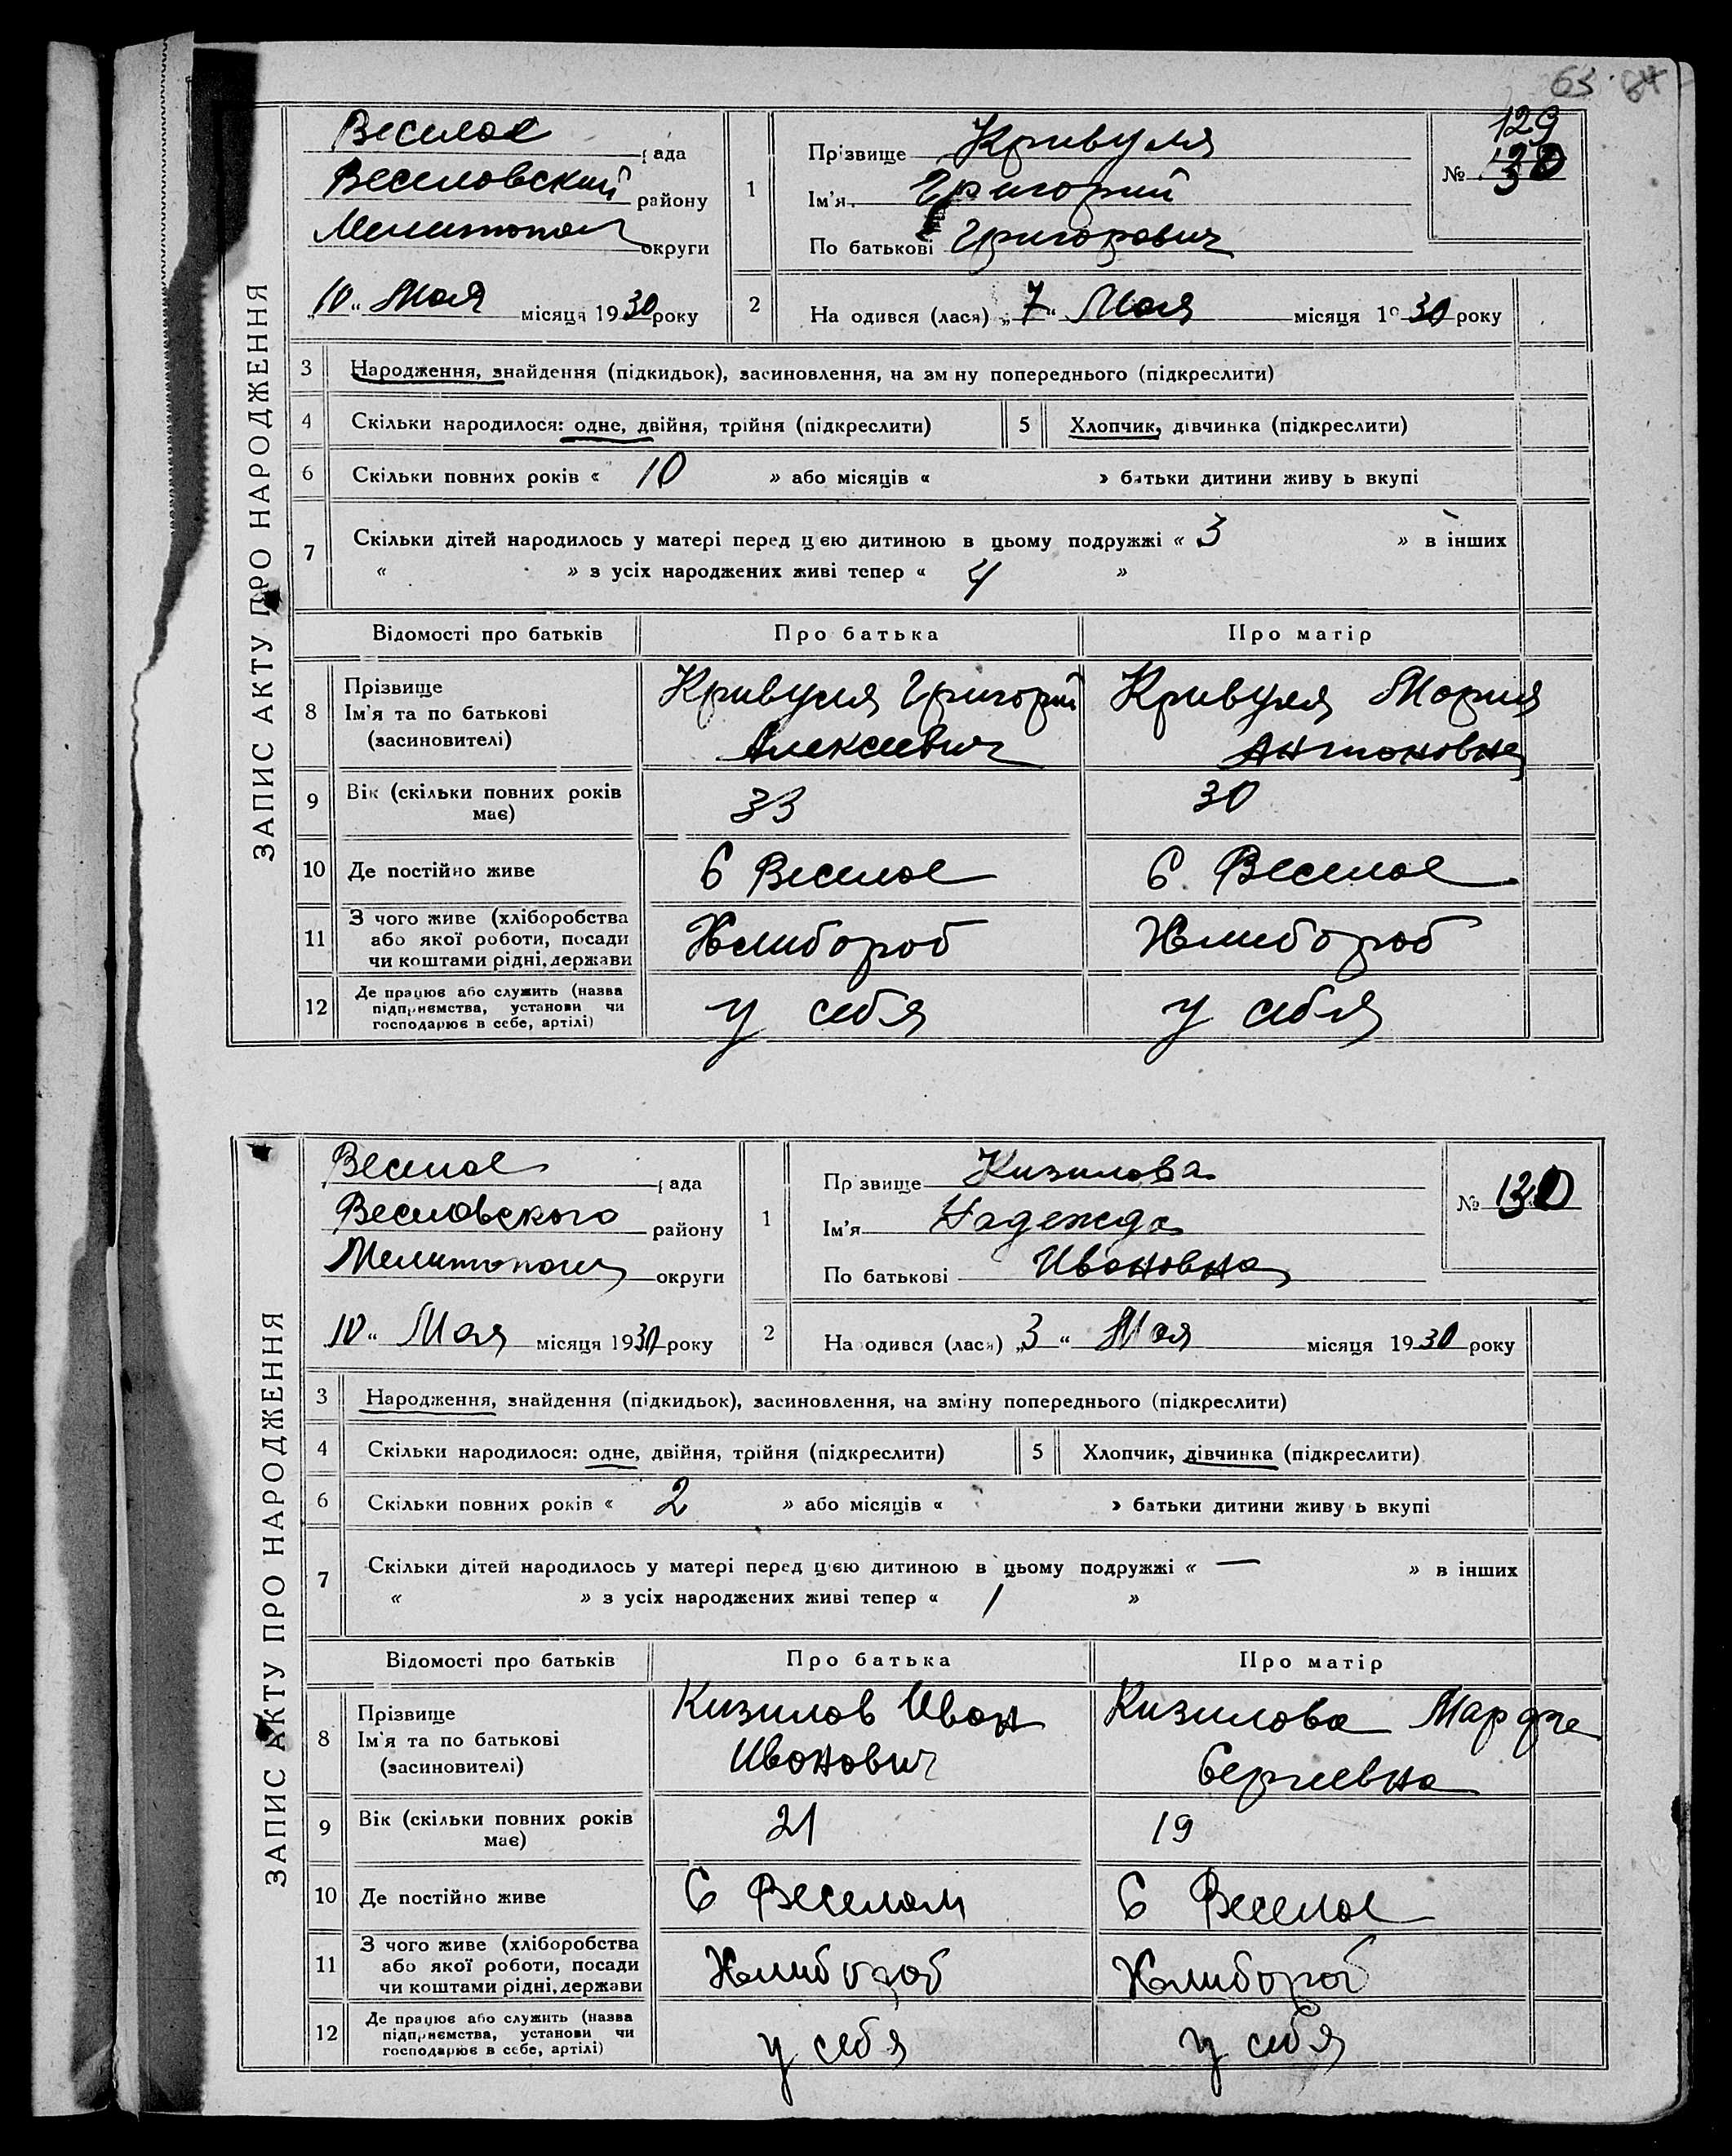 63. 64
ЗАПИС АКТУ ПРО НАРОДЖЕННЯ
Веселое рада
Веселовский району
Мелитопол округи
„10“ Мая місяця 1930 року
1
Прізвище Кривуля
Ім'я Григорий
По батькові Григорович
129
№ 130
2
Народився (лася) „7“ Мая місяця 1930 року
3 Народження, знайдення (підкидьок), засиновлення, на зміну попереднього (підкреслити)
4 Скільки народилося: одне, двійня, трійня (підкреслити) 5 Хлопчик, дівчинка (підкреслити)
6 Скільки повних років « 10 » або місяців « » батьки дитини живуть вкупі
7 Скільки дітей народилось у матері перед цією дитиною в цьому подружжі « 3 » в інших
« » з усіх народжених живі тепер « 4 »
Відомості про батьків Про батька Про матір
8 Прізвище
Ім'я та по батькові
(засиновителі)
Кривуля Григорий
Алексеевич
Кривуля Мария
Антоновна
9 Вік (скільки повних років
має)
33 30
10 Де постійно живе С Веселое С. Веселое
11 З чого живе (хліборобства
або якої роботи, посади
чи коштами рідні, держави
Хлибороб Хлибороб
12 Де працює або служить (назва
підприємства, установи чи
господарює в себе, артілі)
у себя у себя
ЗАПИС АКТУ ПРО НАРОДЖЕННЯ
Веселое рада
Веселовского району
Мелитопол округи
„10“ Мая місяця 1930 року
1
Прізвище Кизилова
Ім'я Надежда
По батькові Ивановна
№ 130
2
Народився (лася) „3“ Мая місяця 1930 року
3 Народження, знайдення (підкидьок), засиновлення, на зміну попереднього (підкреслити)
4 Скільки народилося: одне, двійня, трійня (підкреслити) 5 Хлопчик, дівчинка (підкреслити)
6 Скільки повних років « 2 » або місяців « » батьки дитини живуть вкупі
7 Скільки дітей народилось у матері перед цією дитиною в цьому подружжі « — » в інших
« » з усіх народжених живі тепер « 1 »
Відомості про батьків Про батька Про матір
8 Прізвище
Ім'я та по батькові
(засиновителі)
Кизилов Иван
Иванович
Кизилова Марфа
Сергеевна
9 Вік (скільки повних років
має)
21 19
10 Де постійно живе С Веселом С Веселое
11 З чого живе (хліборобства
або якої роботи, посади
чи коштами рідні, держави
Хлибороб Хлибороб
12 Де працює або служить (назва
підприємства, установи чи
господарює в себе, артілі)
у себя у себя